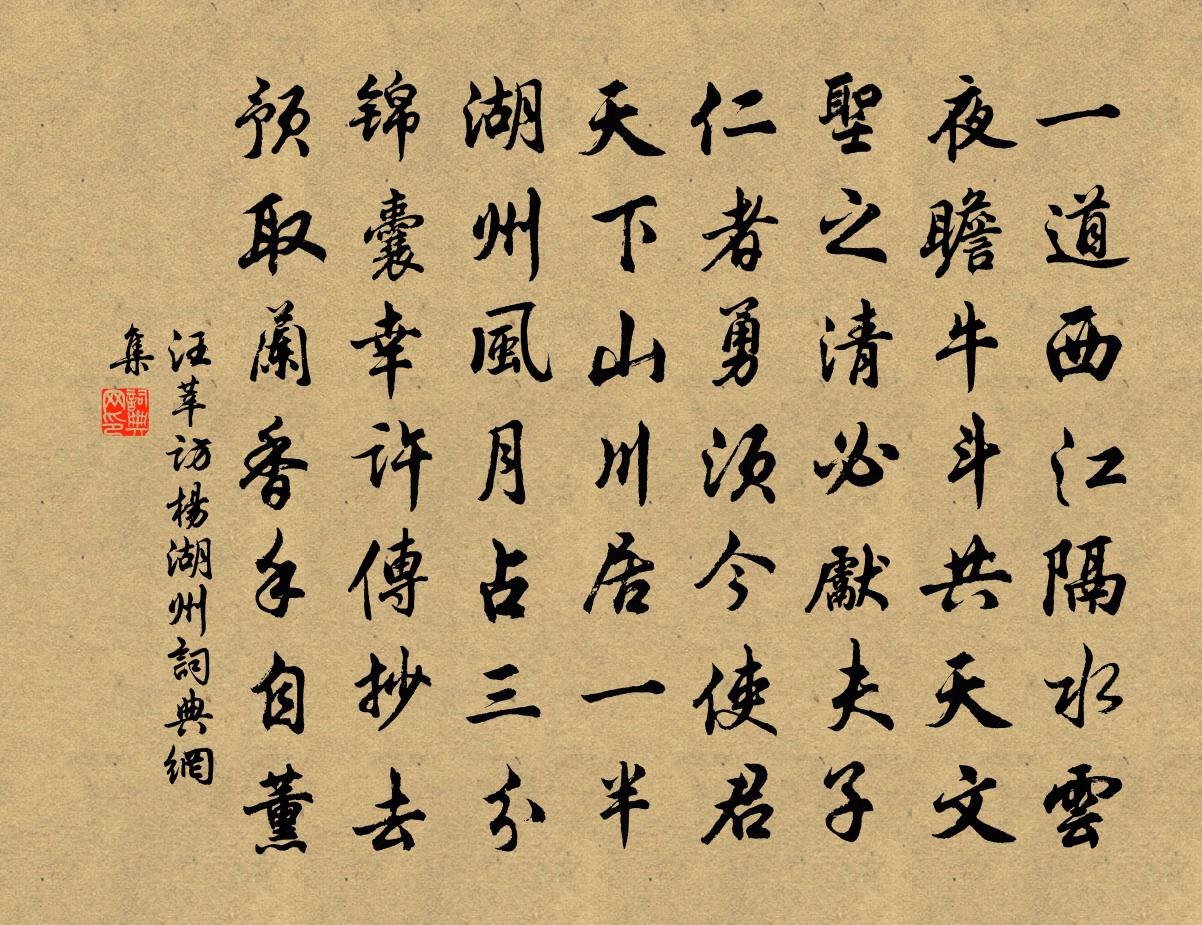 一道西江隔水雲
夜瞻牛斗共天文
聖之清必獻夫子
仁者勇須今使君
天下山川居一半
湖州風月占三分
锦囊幸許傳抄去
预取蘭香手自薰
汪莘访楊湖州詞典網
集
詞典
网印